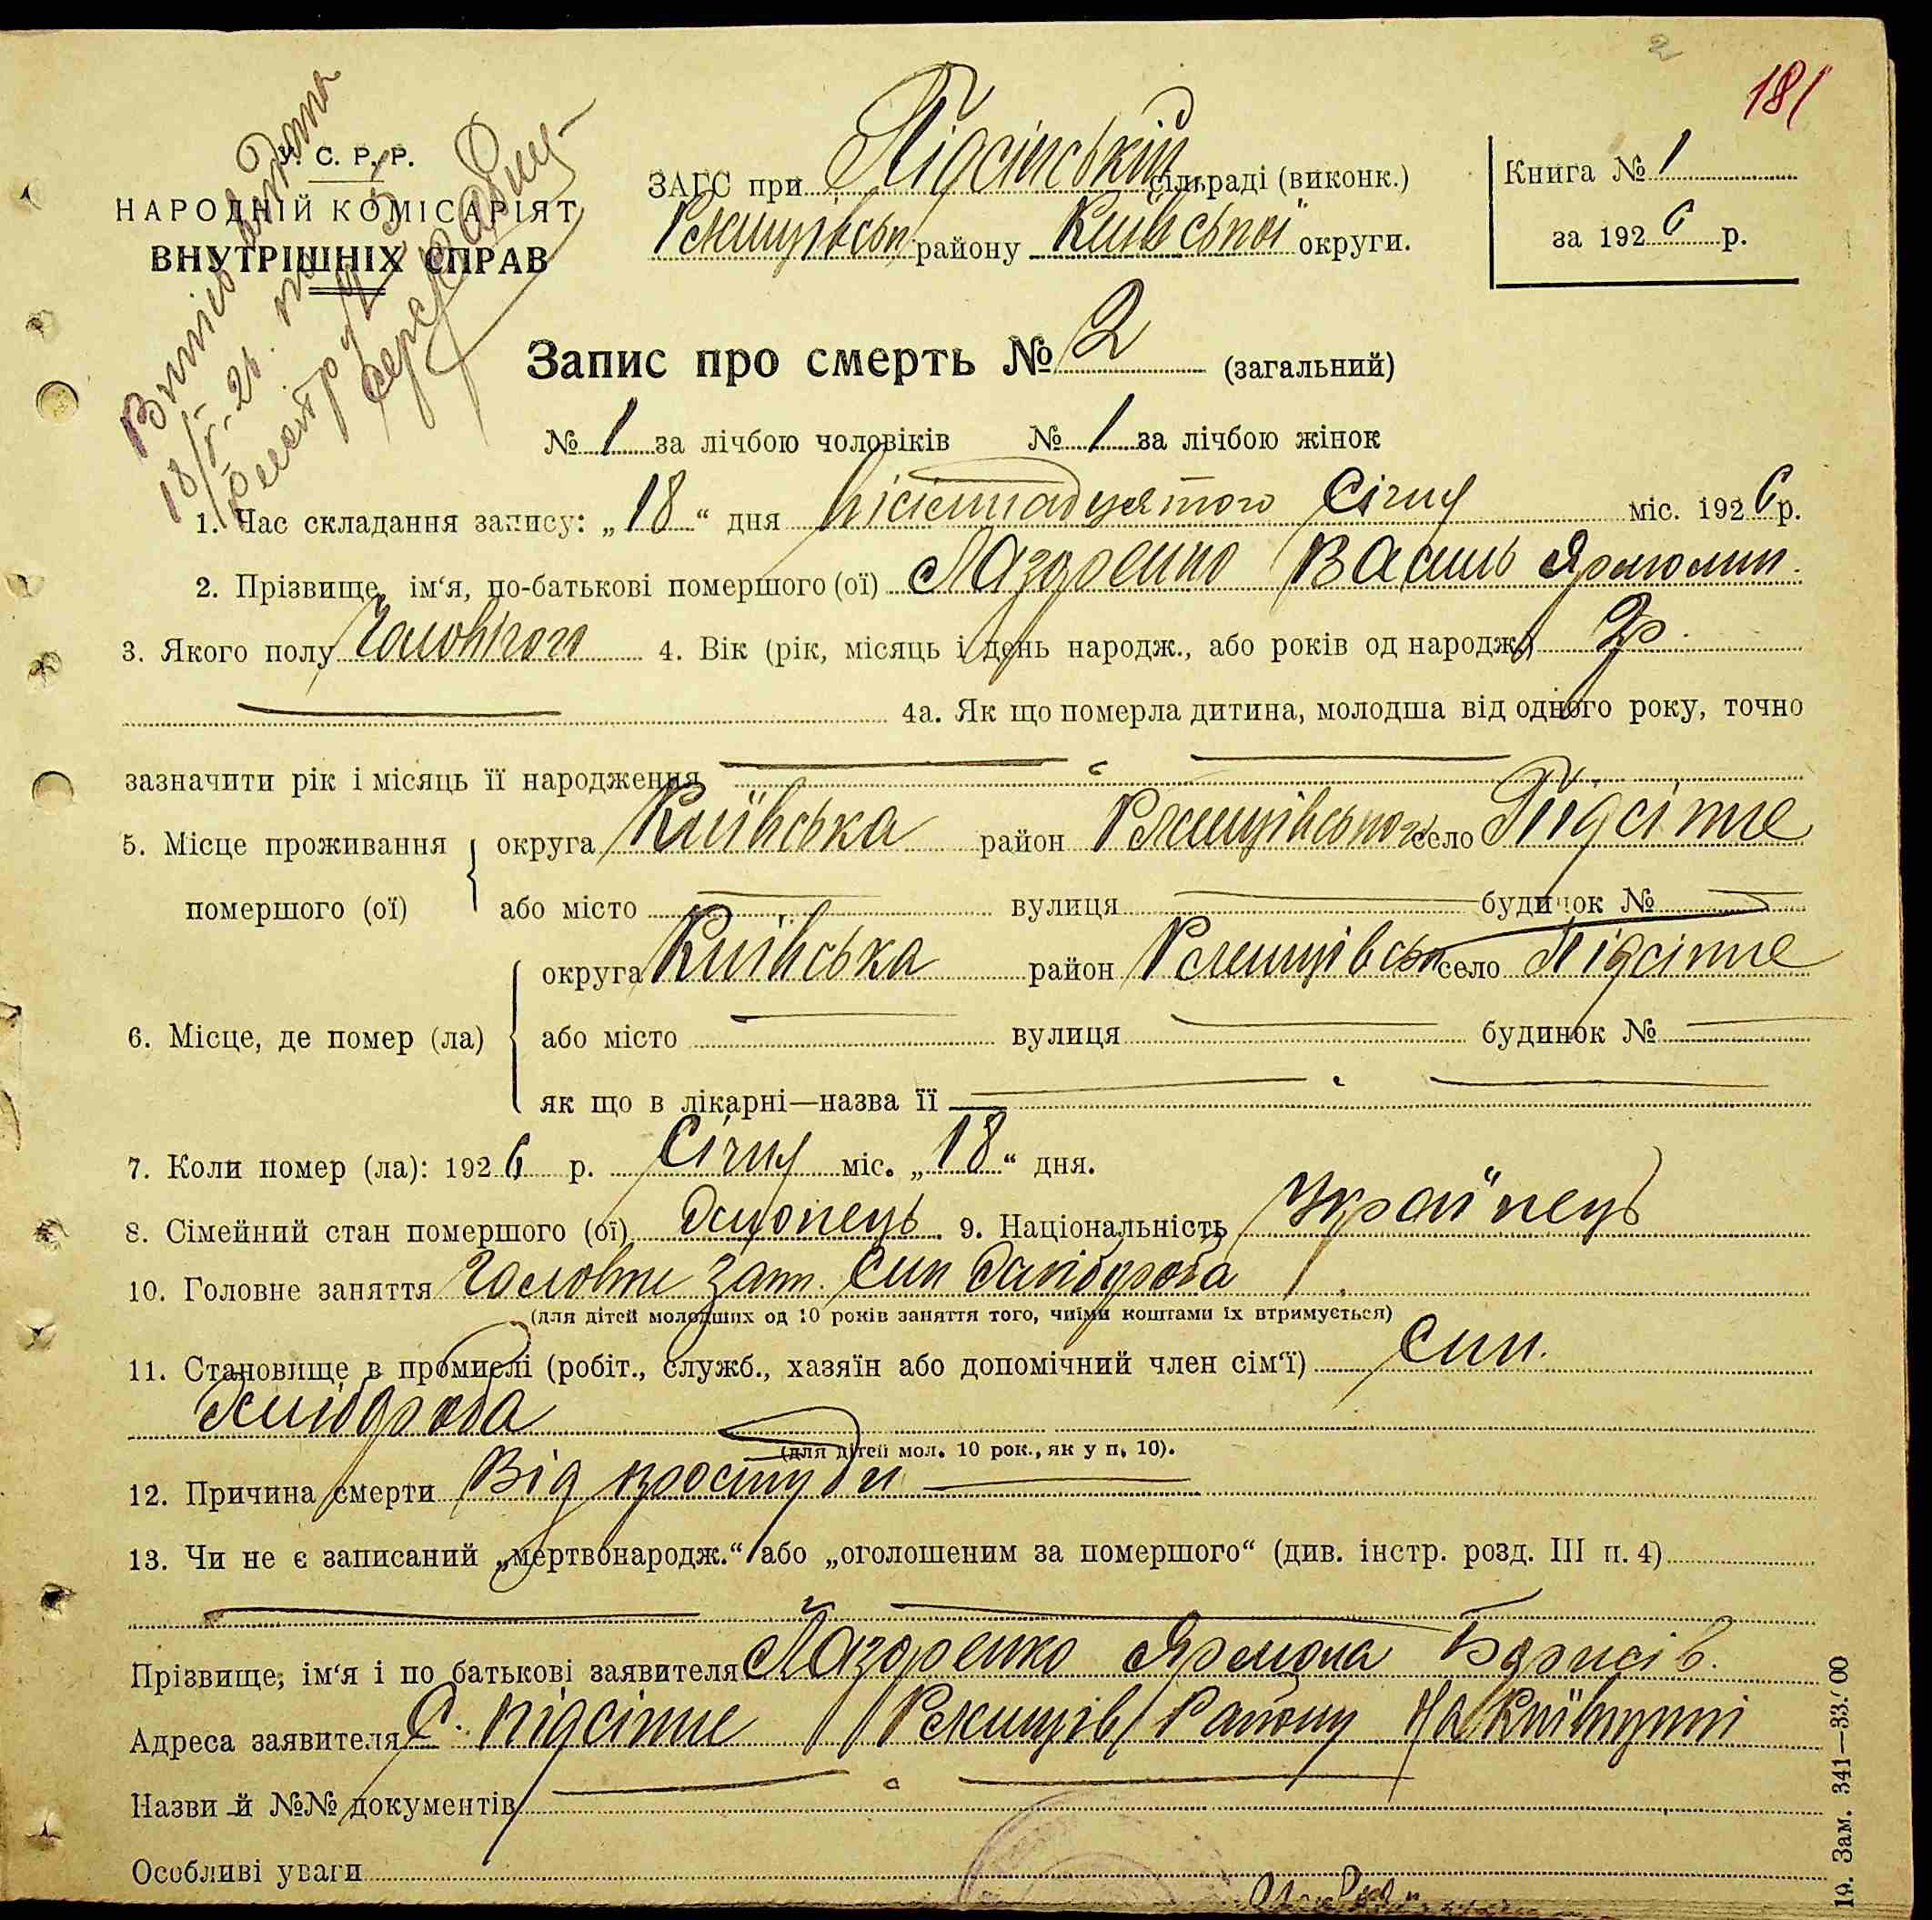 2
181
У. С. Р. Р.
НАРОДНІЙ КОМІСАРІЯТ
ВНУТРІШНІХ СПРАВ
ЗАГС при Підсінський сільраді (виконк.)
Ржищівськ. району Київської округи.
Книга № 1
за 1926 р.
Запис про смерть № 2 (загальний)
№ 1 за лічбою чоловіків № 1 за лічбою жінок
1. Час складання запису: „18“ дня вісімнадцятого Січня міс. 1926 р.
2. Прізвище, ім‘я, по-батькові помершого (ої) Лазоренко Василь Ярмолин.
3. Якого полу Чоловічого 4. Вік (рік, місяць і день народж., або років од народж.) 2 р.
4а. Як що померла дитина, молодша від одного року, точно
зазначити рік і місяць її народження
5. Місце проживання помершого (ої) округа Київська район Ржищівського село Підсінне
або місто вулиця будинок №
6. Місце, де помер (ла) округа Київська район Ржищівськ село Підсінне
або місто вулиця будинок №
як що в лікарні—назва її
7. Коли помер (ла): 1926 р. Січня міс. „18“ дня.
8. Сімейний стан помершого (ої) 9. Національність Україпець
10. Головне заняття Головне зан. син хлібороба
(для дітей молодших од 10 років заняття того, чиїми коштами їх втримується)
11. Становище в промислі (робіт., служб., хазяїн або допомічний член сім‘ї) син.
хлібороба
(для дітей мол. 10 рок., як у п. 10).
12. Причина смерти Від простуди
13. Чи не є записаний „мертвонародж.“ або „оголошеним за помершого“ (див. інстр. розд. III п. 4)
Прізвище, ім‘я і по батькові заявителя Лазоренко Ярмола Борисів.
Адреса заявителя С. Підсінне Ржищів/ Району На Київщині
Назви й №№ документів
Особливі уваги
19. Зам. 341—33.000